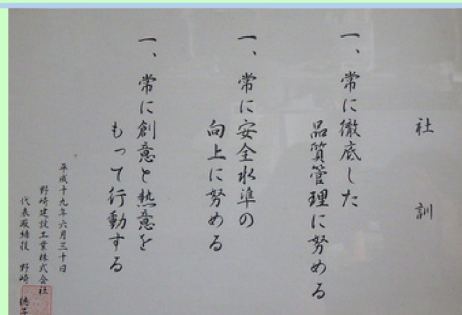 社訓
一、常に徹底した
品質管理に努める
一、常に安全水準の
向上に努める
一、常に創意と熱意を
もって行動する
平成十九年六月三十日
野崎建設工業株式会社
代表取締役 野崎